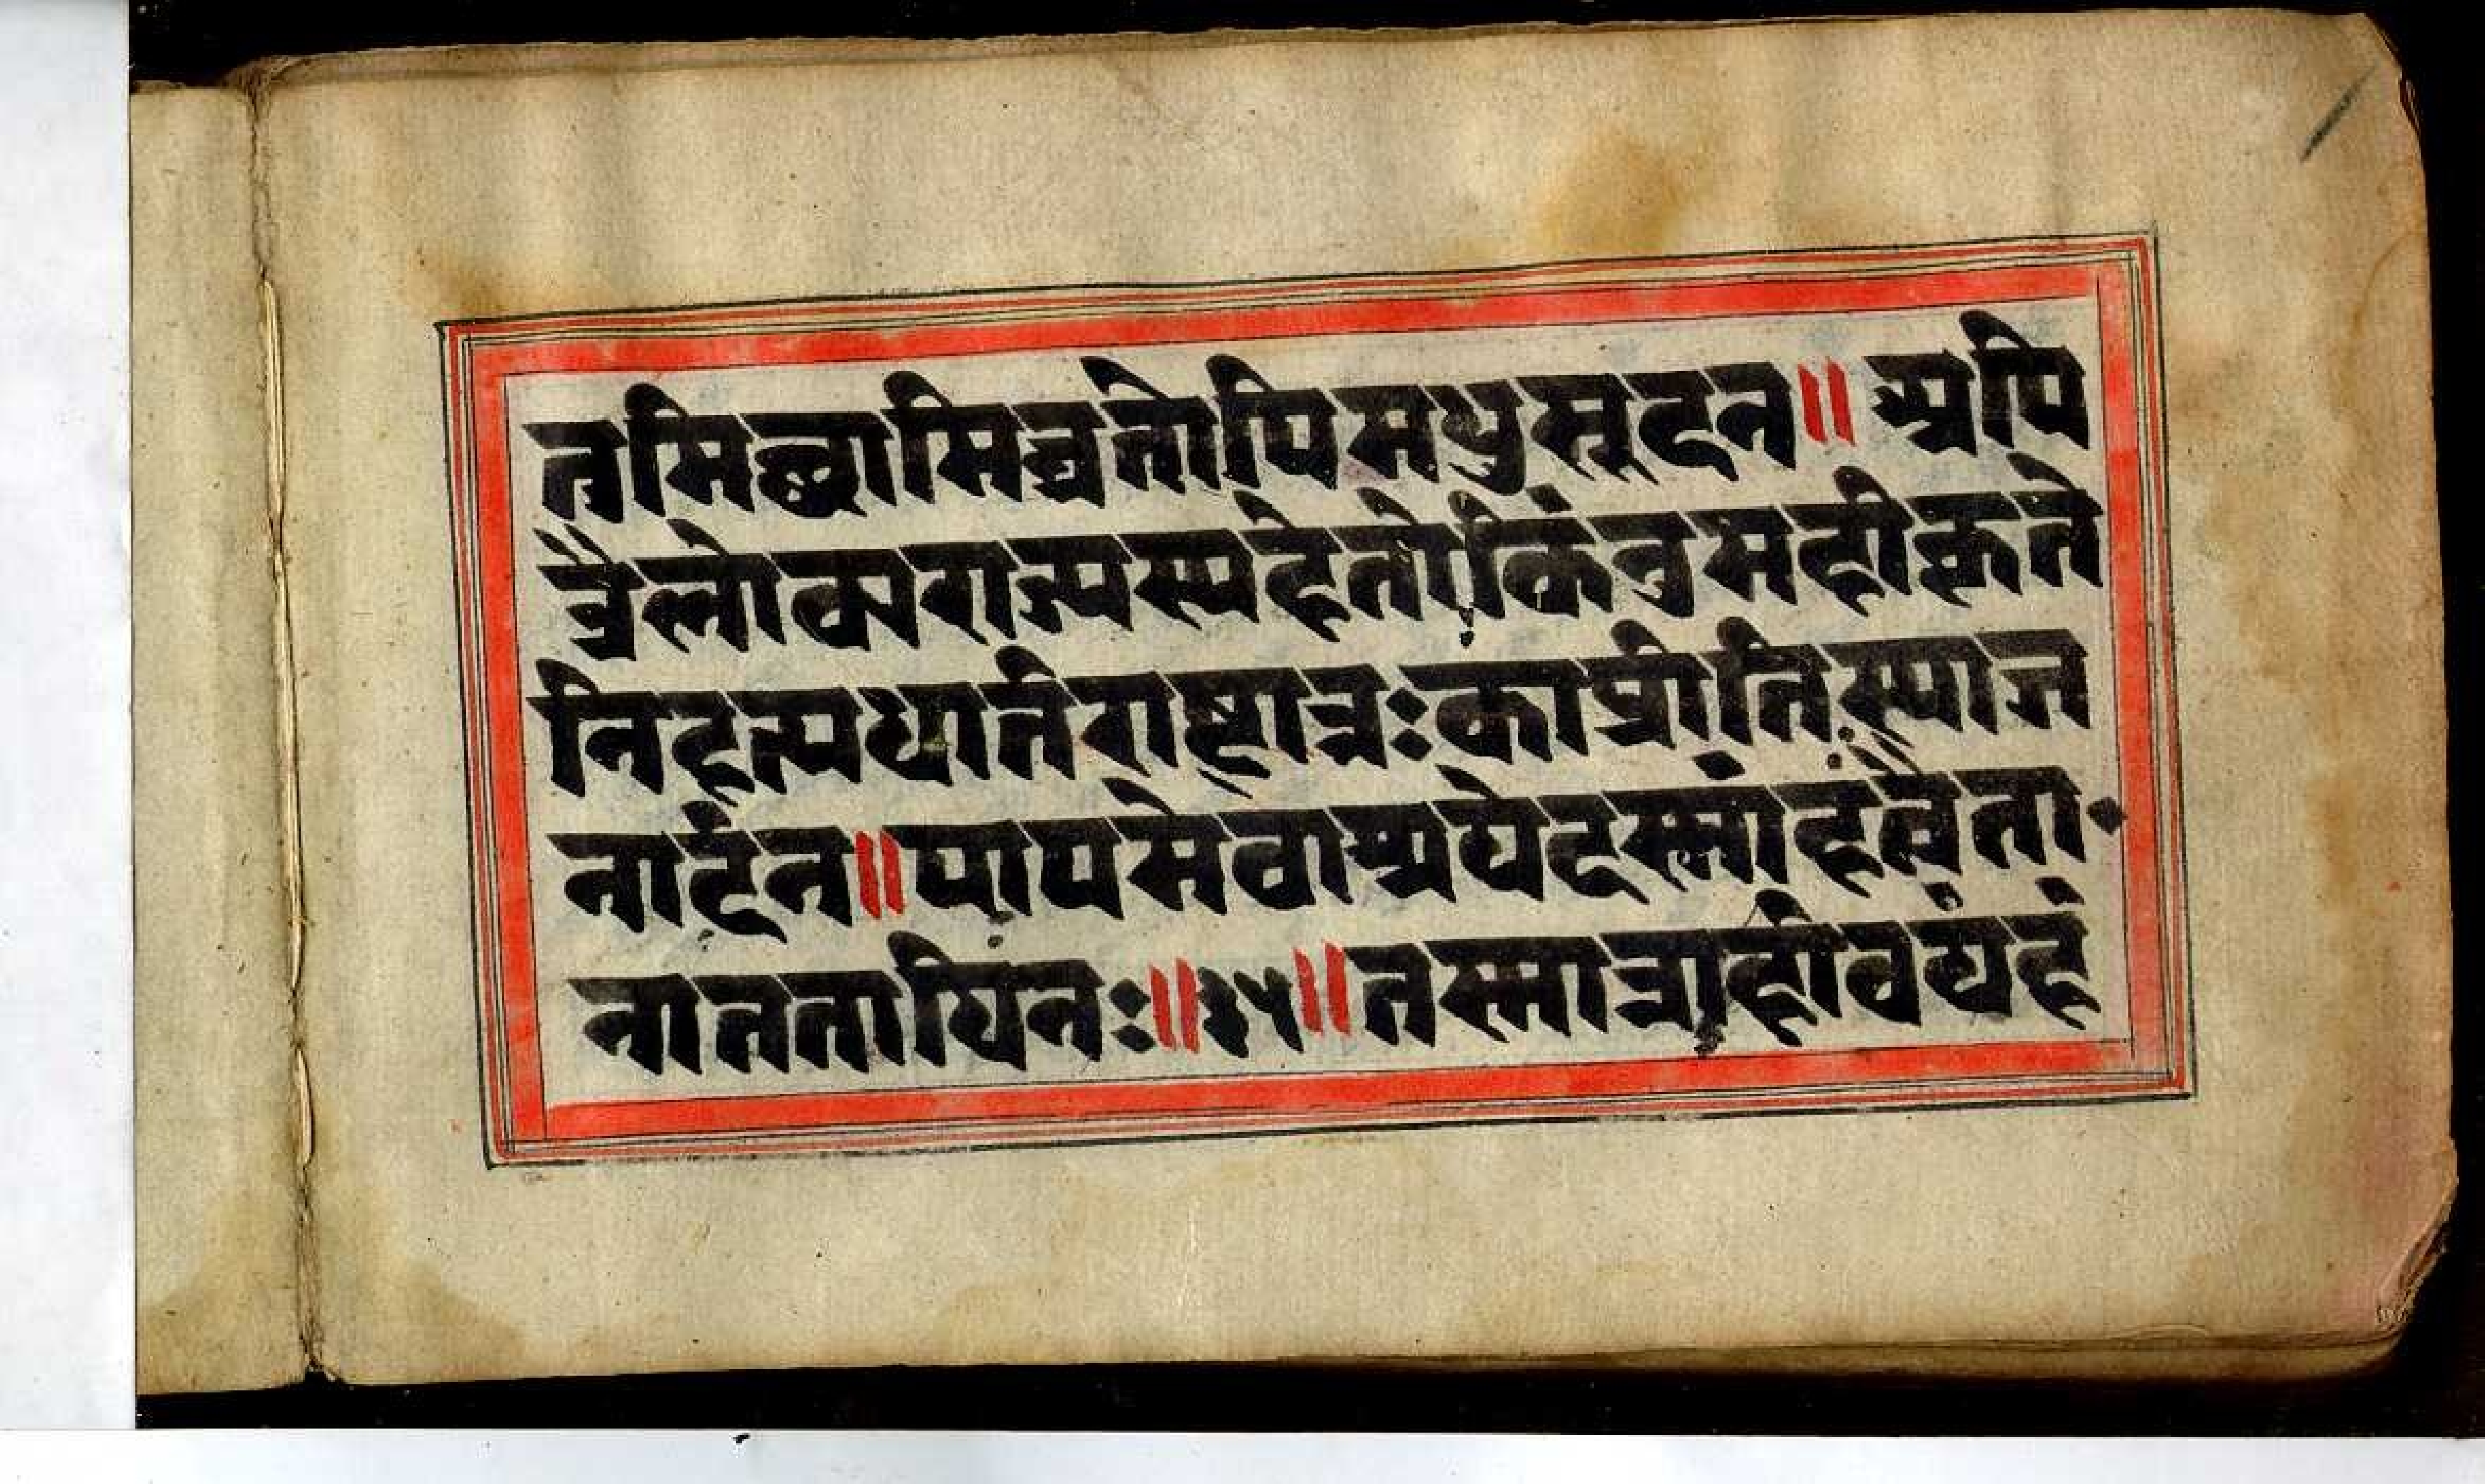 तमिछामिघ्नतोपिमधुसूदन॥अपि
त्रैलोक्यराज्यस्यहेतोकिंनुमहीकृते
निहत्यधार्तराष्ट्रान्नःकाप्रीतिस्याज
नार्दन॥पापमेवाश्रयेदस्मांहत्वैता
नाततायिनः॥३५॥तस्मान्नार्हावयंहं